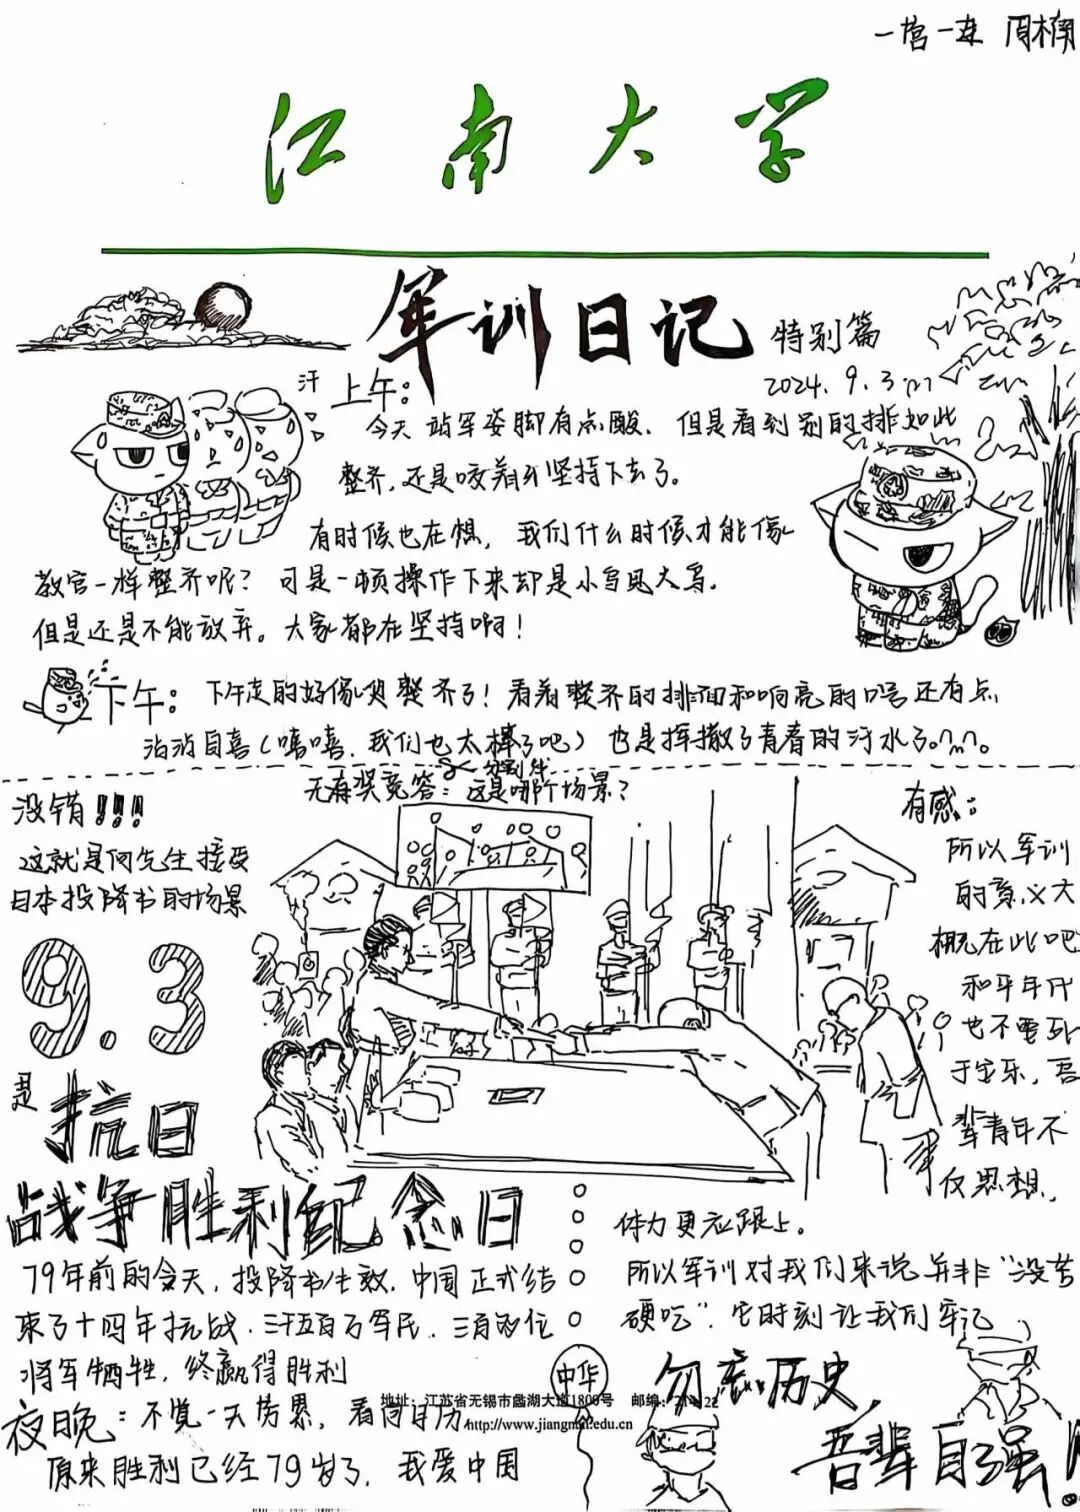 一营一连 周楠
江南大学
军训日记
特别篇
2024.9.3
汗
上午：
今天站军姿脚有点酸，但是看到别的排如此
整齐，还是咬着牙坚持下去了。
有时候也在想，我们什么时候才能像
教官一样整齐呢？可是一顿操作下来却是小鸟见大鸟。
但是还是不能放弃。大家都在坚持啊！
下午：下午走的好像更整齐了！看着整齐的排面和响亮的口号还有点
沾沾自喜（嘻嘻，我们也太棒了吧）也是挥撒了青春的汗水了
分割线
无有奖竞答：这是哪个场景？
没错!!!
这就是何先生接受
日本投降书的场景
9.3
是抗日
战争胜利纪念日
79年前的今天，投降书生效，中国正式结
束了十四年抗战，三千五百万军民，三百多位
将军牺牲，终赢得胜利
夜晚：不觉一天劳累，看向日历
原来胜利已经79岁了，我爱中国
有感：
所以军训
的意义大
概在此吧
和平年代
也不要死
于安乐，吾
辈青年不
仅思想，
体力更应跟上。
所以军训对我们来说并非“没苦
硬吃”，它时刻让我们牢记
中华
勿忘历史，
吾辈自强
地址：江苏省无锡市蠡湖大道1800号 邮编：
http://www.jiangnan.edu.cn